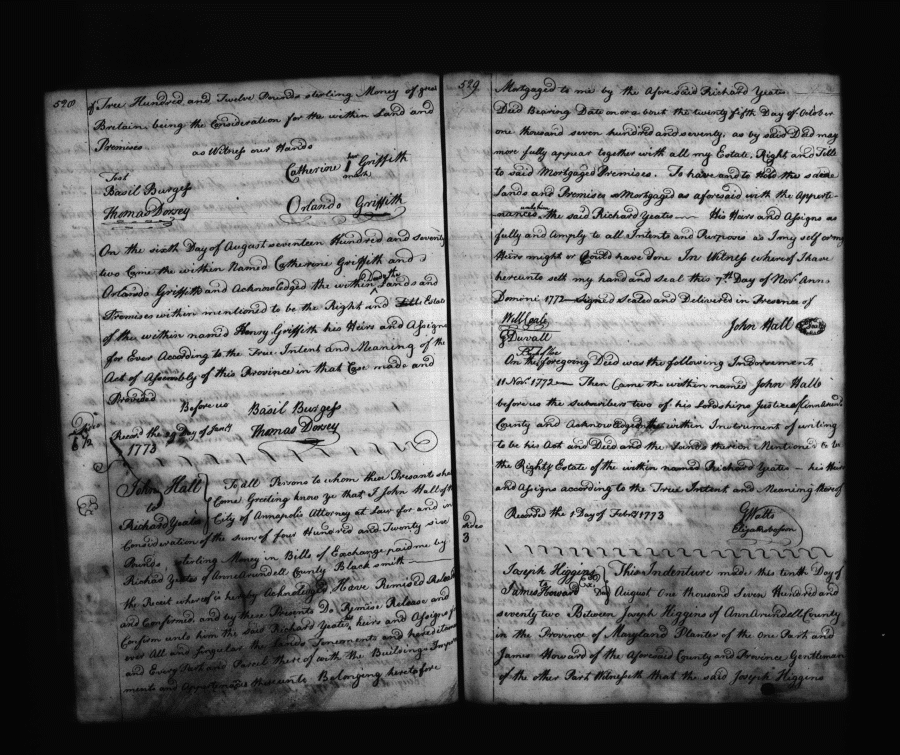 528
of Three Hundred and Twelve Pounds sterling Money of great
Bretain, being the Consideration for the within Land and
Premises
as Witness our Hands
Test
Catherine Griffith
mark
Basil Burgess
Thomas Dorsey
Orlando Griffith
On the sixth Day of August seventeen Hundred and seventy
two Came the within Named Catherine Griffith and
Orlando Griffith and Acknowledged the within Lands and
Premises within mentioned to be the Right and Estate
of the within named Henry Griffith his Heirs and Assigns
for Ever According to the True Intent and Meaning of the
Act of Assembly of this Province in that Case made and
Provided
Before us Basil Burgess
Thomas Dorsey
Record the Day of Janry
1773
John Hall
to
Richard Yeats
To all Persons to whom these Presents shall
Come Greeting know ye that I John Hall of the
City of Annapolis Attorney at Law for and in
Consideration of the sum of four Hundred and Twenty six
Pounds, sterling Money in Bills of Exchange paid me by
Richard Yeates of Anne Arundell County Black smith
the Receit whereof is hereby Acknoledged Have Remised Released
and Confirmed and by these Presents Do Remise Release and
Confirm unto him the said Richard Yeates heirs and Assigns for
ever All and Singular the Lands Tenements and hereditaments
and Every Part and Parcel thereof with the Buildings Improve
ments and Appertenances thereunto Belonging heretofore
529
Mortgaged to me by the Afore said Richard Yeates
Deed Bearing Date on or about the twenty fifth Day of October
one thousand seven hundred and seventy, as by said Deed may
more fully appear together with all my Estate, Right and Title
to said Mortgaged Premises. To have and to Hold the said
Lands and Premises so Mortgaged as aforesaid with the Apperte
nances unto the said Richard Yeates His Heirs and Assigns as
fully and Amply to all Intents and Purposes as I my self or my
Heirs might or Could have done In Witness whereof I have
hereunto sett my hand and seal this 7th Day of Novr. Anno
Domini 1772 Signed Sealed and Delivered in Presence of
Will Coale
John Hall
G Duvall
On the foregoing Deed was the following Indorsement
11 Novr. 1772 Then Came the within named John Hall
before us the subscribers two of his Lordships Justices of Annarundel
County and Acknowledged the within Instrument of writing
to be his Act and Deed and the Lands therein Mentioned to be
the Right & Estate of the within named Richard Yeates his Heirs
and Assigns according to the True Intent and Meaning thereof
Recorded the 1 Day of Febry 1773
G Watts
Joseph Higgins
to
James Howard
This Indenture made this tenth Day of
August one thousand Seven Hundred and
seventy two Between Joseph Higgins of Ann Arundell County
in the Province of Maryland Planter of the One Part and
James Howard of the Aforesaid County and Province, Gentleman
of the other Part Witnesseth that the said Joseph Higgins